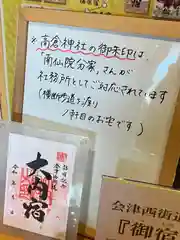 ※高倉神社の御朱印は、
「南仙院分家」さんが
社務所としてご対応されています
(横断歩道を渡り
1軒目のお宅です)
大内宿
会津西街道
『御宿